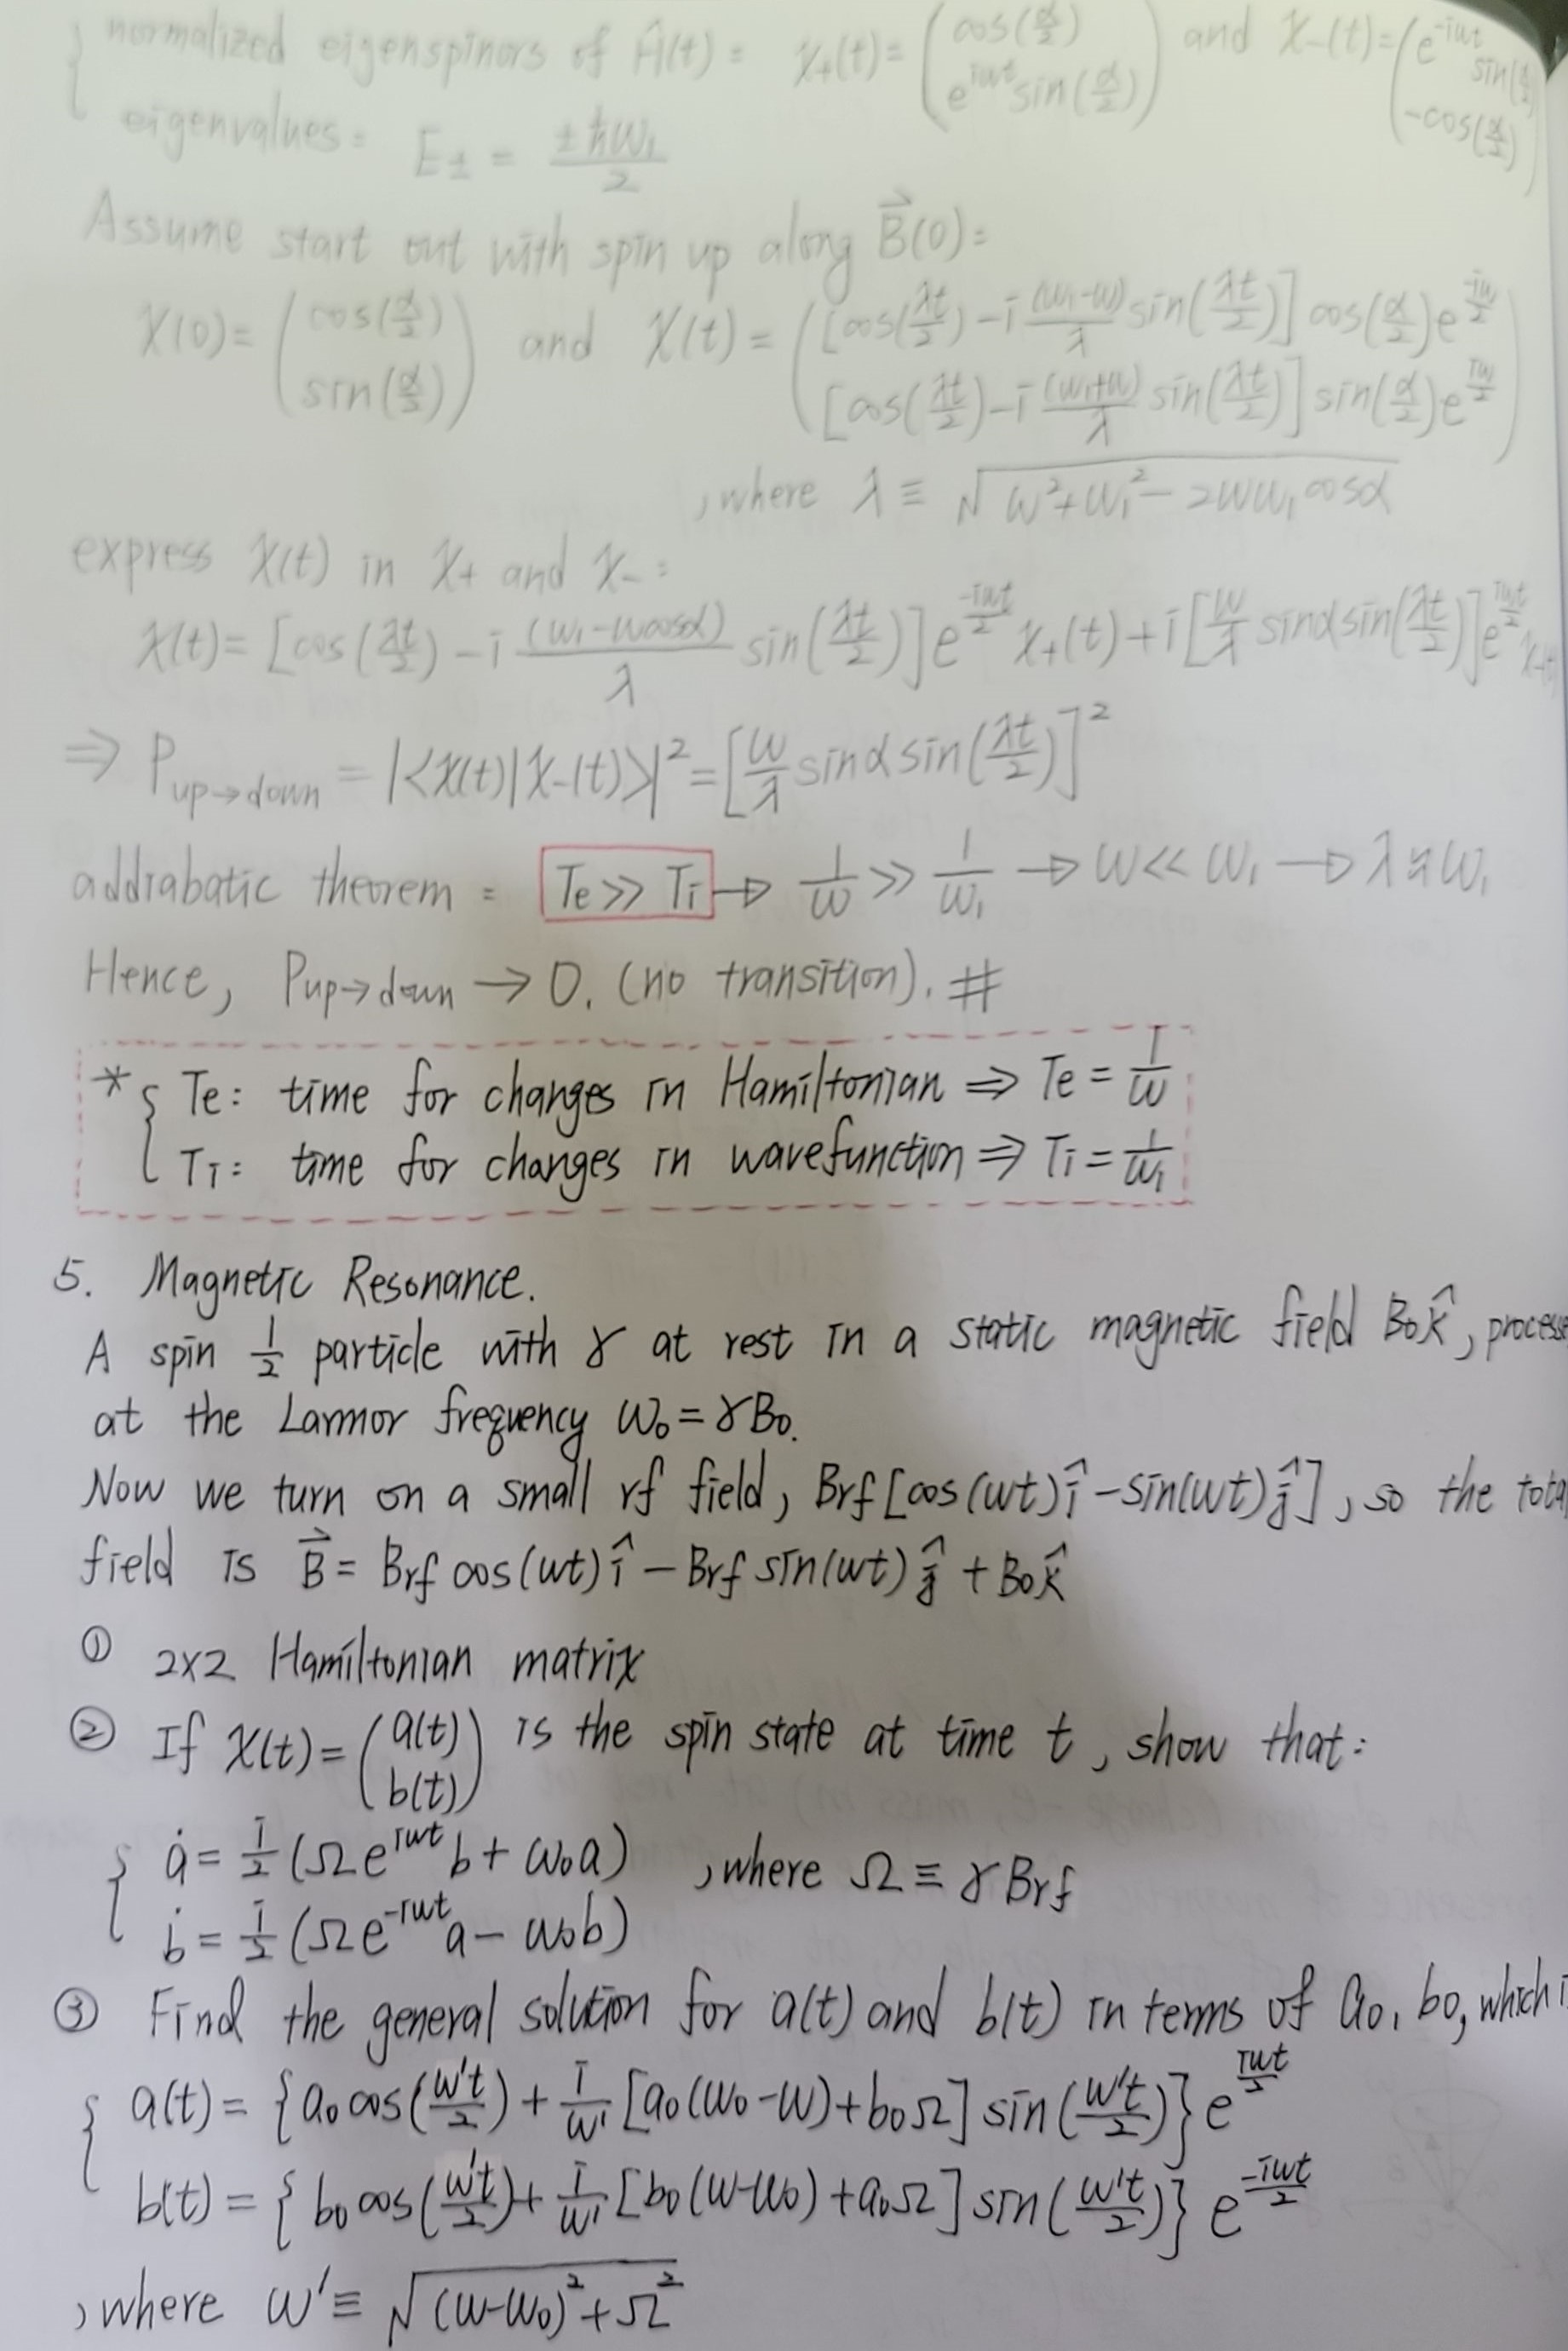 normalized eigenspinors of Ĥ(t) = χ₊(t) = (cos(α/2) e^{iωt} sin(α/2)) and χ₋(t) = (e^{-iωt} sin(α/2) -cos(α/2))
eigenvalues = E± = ±ħω₁/2
Assume start out with spin up along B⃗(0) =
χ(0) = (cos(α/2) sin(α/2)) and χ(t) = ([cos(λt/2) - i (ω₁-ω)/λ sin(λt/2)] cos(α/2) e^{-iω/2} [cos(λt/2) - i (ω₁+ω)/λ sin(λt/2)] sin(α/2) e^{iω/2})
, where λ ≡ √(ω²+ω₁²-2ωω₁cosα)
express χ(t) in χ₊ and χ₋ =
χ(t) = [cos(λt/2) - i (ω₁-ωcosα)/λ sin(λt/2)] e^{-iωt/2} χ₊(t) + i [ω/λ sinα sin(λt/2)] e^{iωt/2}
⇒ P up→down = |<χ(t)|χ₋(t)>|² = [ω/λ sinα sin(λt/2)]²
addiabatic theorem = Te ≫ Ti → 1/ω ≫ 1/ω₁ → ω ≪ ω₁ → λ ≒ ω₁
Hence, P up→down → 0. (no transition). #
* { Te: time for changes in Hamiltonian ⇒ Te = 1/ω
Ti: time for changes in wavefunction ⇒ Ti = 1/ω₁
5. Magnetic Resonance.
A spin 1/2 particle with γ at rest in a static magnetic field B₀k̂, processe
at the Larmor frequency ω₀ = γB₀.
Now we turn on a small rf field, Brf[cos(ωt)î - sin(ωt)ĵ], so the tota
field is B⃗ = Brf cos(ωt)î - Brf sin(ωt)ĵ + B₀k̂
① 2x2 Hamiltonian matrix
② If χ(t) = (a(t) b(t)) is the spin state at time t, show that:
{ ȧ = i/2 (Ωe^{iωt} b + ω₀a) , where Ω ≡ γBrf
ḃ = i/2 (Ωe^{-iωt} a - ω₀b)
③ Find the general solution for a(t) and b(t) in terms of a₀, b₀, which i
{ a(t) = {a₀cos(ω't/2) + i/ω' [a₀(ω₀-ω)+b₀Ω] sin(ω't/2)} e^{iωt/2}
b(t) = {b₀cos(ω't/2) + i/ω' [b₀(ω-ω₀)+a₀Ω] sin(ω't/2)} e^{-iωt/2}
, where ω' ≡ √((ω-ω₀)²+Ω²)